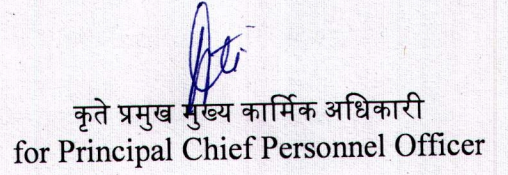 कृते प्रमुख मुख्य कार्मिक अधिकारी
for Principal Chief Personnel Officer